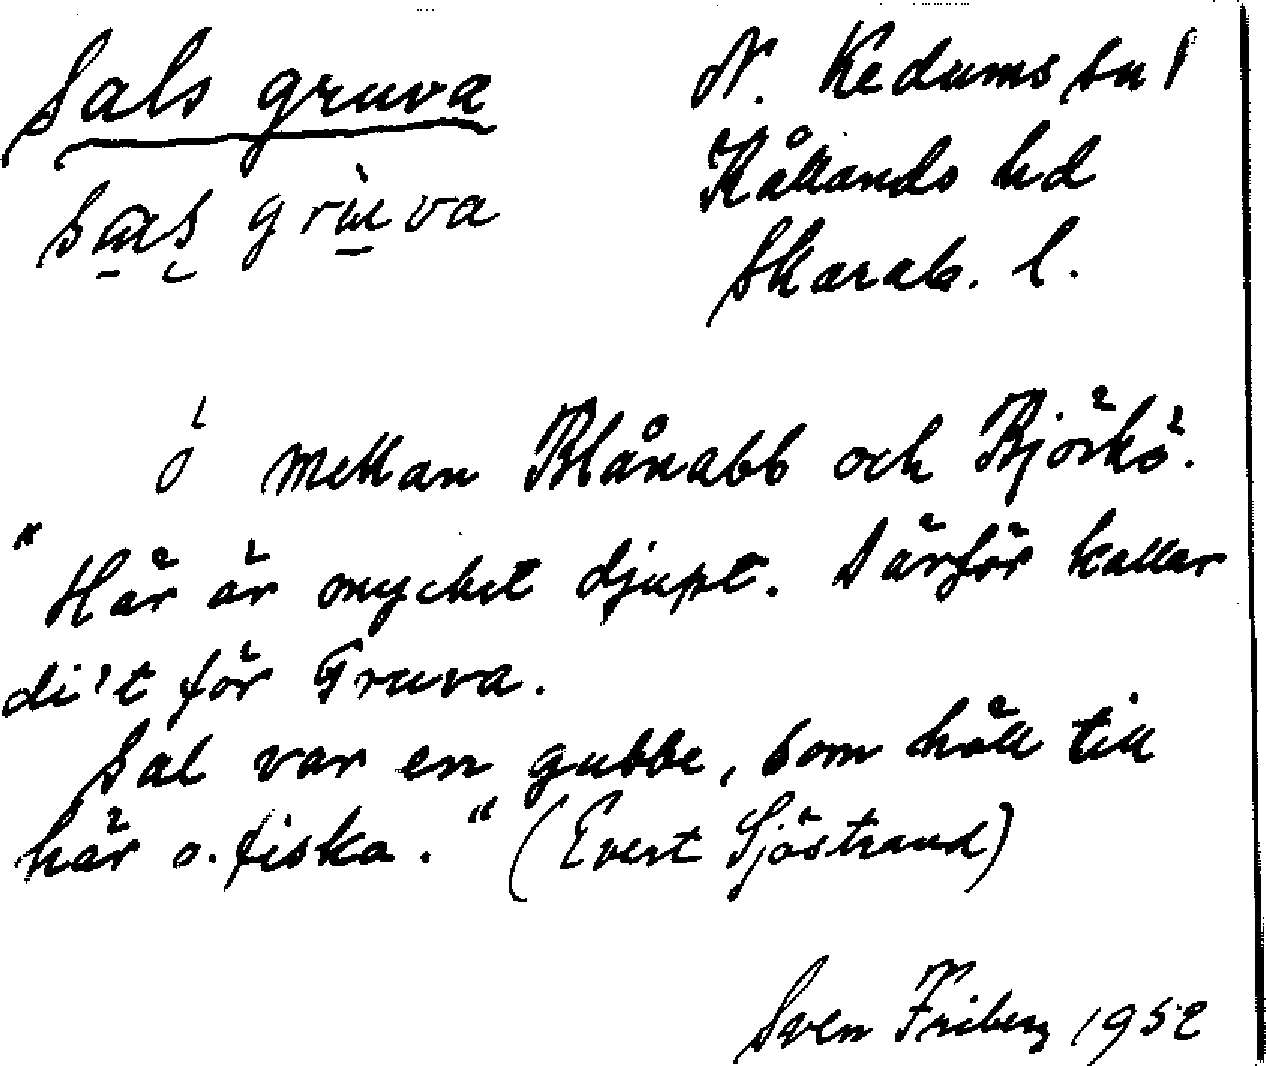 Sals gruva
N. Kedums sn
Kållands hd
Skarab. l.
ö mellan Blånabb och Björkö.
"Här är mycket djupt. Därför kallar
di't för Gruva.
Sal var en gubbe, som höll till
här o. fiska." (Evert Sjöstrand)
Sven Friberg 1952